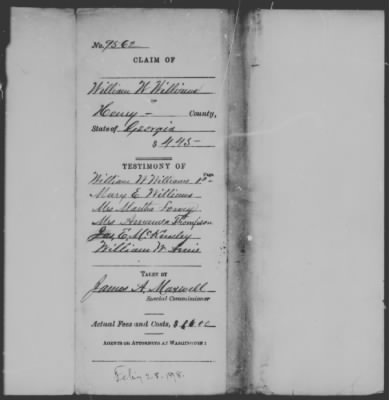 No. 9562
CLAIM OF
William W Williams
OF
Henry - County,
State of Georgia
$ 445-
TESTIMONY OF
Page
William W Williams
Mary E. Williams
Mrs Martha
Mrs Amanda Thompson
Jas. E. McKinsley
William W
TAKEN BY
James A. Maxwell
Special Commissioner
Actual Fees and Costs, $
AGENTS OR ATTORNEYS AT WASHINGTON: